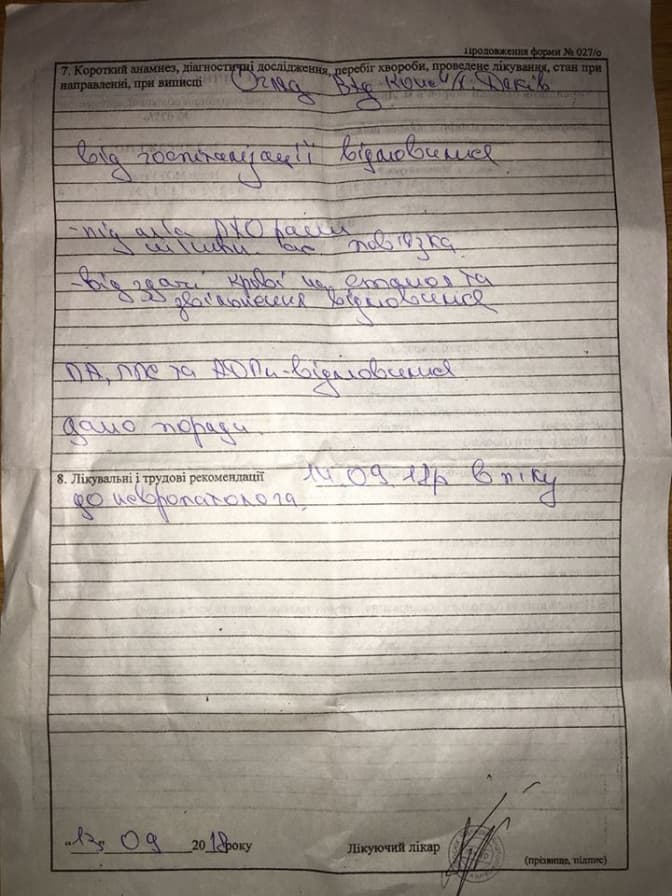 Продовження форми № 027/о
7. Короткий анамнез, діагностичні дослідження, перебіг хвороби, проведене лікування, стан при
направленні, при виписці Огляд
від госпіталізації відмовився
-під м/а ПХО рани
шви ас пов'язка
-від здачі крові на етанол та
відмовився
та відмовився
дано поради
8. Лікувальні і трудові рекомендації 14 09 18р в п-ку
до невропатолога
"13" 09 2018 року Лікуючий лікар
(прізвище, підпис)